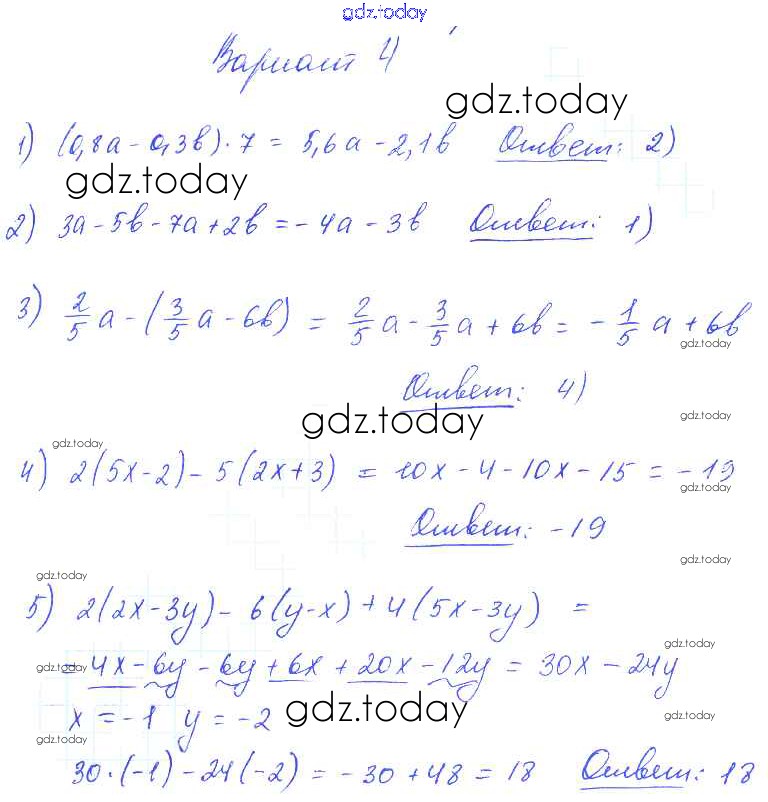 gdz.today
Вариант 4
gdz.today
1) (0,8a - 0,3b) · 7 = 5,6a - 2,1b Ответ: 2)
gdz.today
2) 3a - 5b - 7a + 2b = - 4a - 3b Ответ: 1)
3) 2/5 a - (3/5 a - 6b) = 2/5 a - 3/5 a + 6b = - 1/5 a + 6b
gdz.today
Ответ: 4)
gdz.today gdz.today
gdz.today
4) 2(5x - 2) - 5(2x + 3) = 10x - 4 - 10x - 15 = - 19
gdz.today
Ответ: -19
gdz.today
gdz.today
5) 2(2x - 3y) - 6(y - x) + 4(5x - 3y) =
gdz.today
= 4x - 6y - 6y + 6x + 20x - 12y = 30x - 24y
gdz.today
x = - 1 y = - 2 gdz.today gdz.today
gdz.today
30 · (-1) - 24(-2) = - 30 + 48 = 18 Ответ: 18